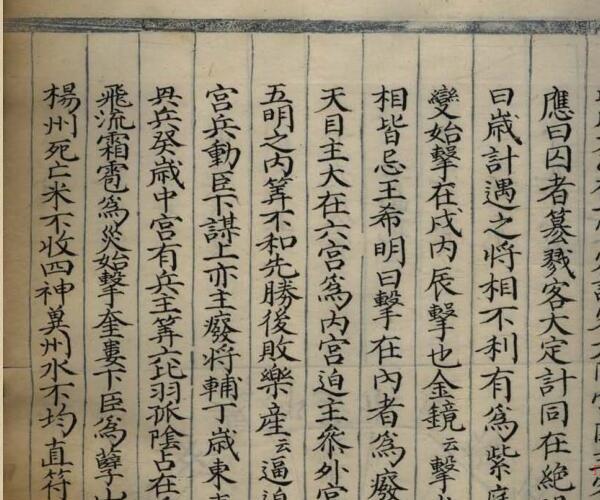 應曰囚者篡戮客大定計同在絶
曰歲計遇之將相不利有爲紫庭
變始擊在戌内辰擊也金鏡云擊
相皆忌王希明曰擊在内者爲廢
天目主大在六宫爲内宫迫主叅外宫
五明之内筭不和先勝後敗樂産云逼迫
宫兵動臣下謀上亦主廢將輔丁歲東
與兵癸歲中宫有兵主筭六玭羽孤隂占在
飛流霜雹爲災始擊奎婁下臣爲孽
楊州死亡米不收四神兾州水不均直符